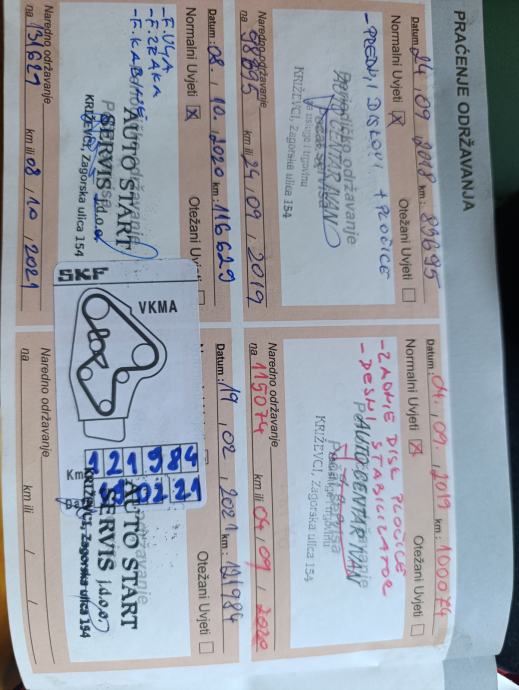 PRAĆENJE ODRŽAVANJA
Datum: 24, 09, 2018 km: 83695
Normalni Uvjeti ☒ Otežani Uvjeti ☐
-PREDNJI DISKOVI + PLOČICE
Periodičko održavanje
KRIŽEVCI, Zagorska ulica 154
Naredno održavanje
na 98695 km ili 24, 09, 2019
Datum: 04, 09, 2019 km: 100074
Normalni Uvjeti ☒ Otežani Uvjeti ☐
-ZADNJE DISK PLOČICE
-DESNI STABILIZATOR
AUTO CENTAR IVAN
KRIŽEVCI, Zagorska ulica 154
Naredno održavanje
na 115074 km ili 04, 09, 2020
Datum: 08, 10, 2020 km: 116629
Normalni Uvjeti ☒ Otežani
-F. ULJA
-F. ZRAKA
-F. KABINE
AUTO START
SERVIS j.d.o.o.
KRIŽEVCI, Zagorska ulica 154
Naredno održavanje
na 131629 km ili 08, 10, 2021
Datum: 19, 02, 2021 km: 121984
Otežani Uvjeti ☐
SKF
VKMA
Km 121984
19 02 21
AUTO START
SERVIS j.d.o.o.
KRIŽEVCI, Zagorska ulica 154
Naredno održavanje
na km ili / /